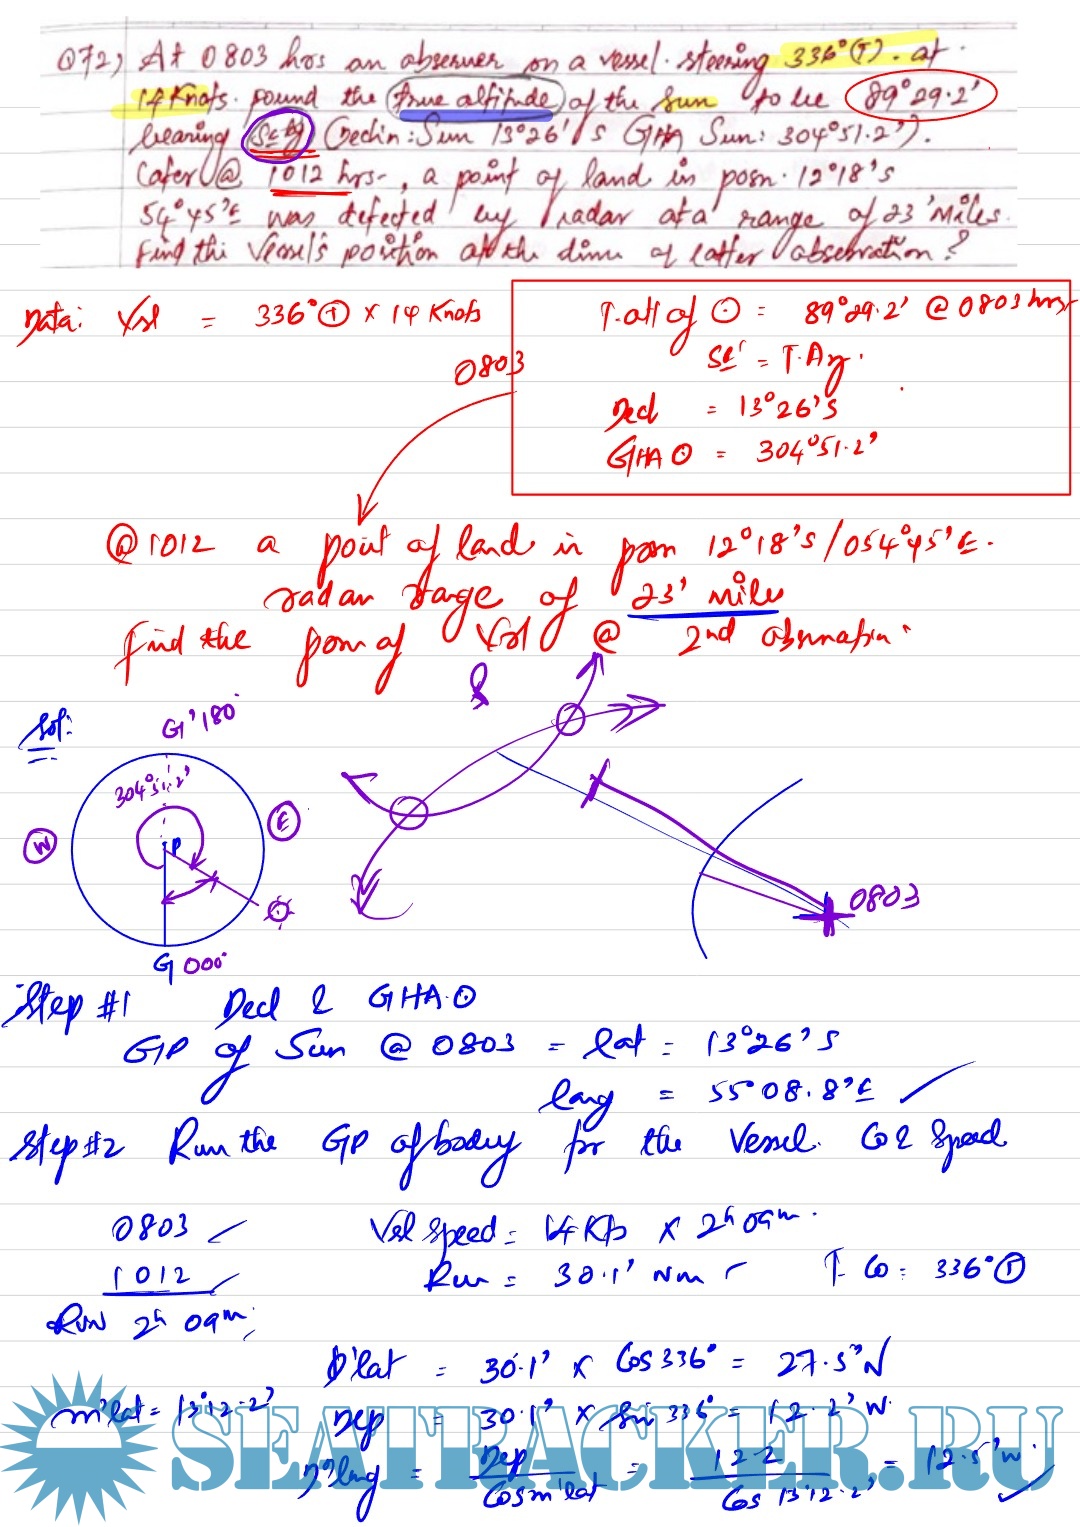 Q72) At 0803 hrs an observer on a vessel steering 336°(T). at
14 Knots. found the true altitude of the sun to be 89°29.2'
bearing SE'ly (Decln: Sun 13°26' S GHA Sun: 304°51.2').
Later @ 1012 hrs-, a point of land in posn. 12°18's
54°45'E was detected by radar at a range of 23 Miles.
Find the Vessel's position at the time of latter observation?
Data: Vsl = 336°(T) x 14 Knots
T.alt of ⊙ = 89°29.2' @ 0803 hrs
SE' = T.Az.
Decl = 13°26's
GHA ⊙ = 304°51.2'
0803
@ 1012 a point of land in posn 12°18's/054°45'E.
radar range of 23' miles
find the posn of Vsl @ 2nd observation.
Sol:
G' 180°
304°51.2'
W
P
E
G 000°
0803
Step #1 Decl & GHA ⊙
GP of Sun @ 0803 = lat = 13°26's
long = 55°08.8'E
Step #2 Run the GP of body for the Vessel. Co & Speed
0803
1012
Run 2h 09m.
Vsl Speed = 14 Kts x 2h 09m.
Run = 30.1' Nm
T. Co = 336°(T)
D'lat = 30.1' x Cos 336° = 27.5'N
m'lat = 13°12.2'
Dep = 30.1' x Sin 336° = 12.2' W.
D'long = Dep / Cos m'lat = 12.2 / Cos 13°12.2' = 12.5'W
SEATRACKER.RU